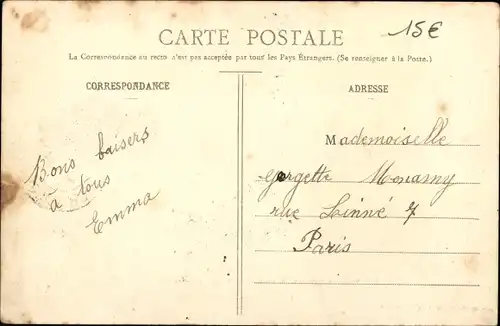 CARTE POSTALE
15€
La Correspondance au recto n'est pas acceptée par tous les Pays Étrangers. (Se renseigner à la Poste.)
CORRESPONDANCE
Bons baisers
à tous
Emma
ADRESSE
Mademoiselle
Georgette
rue Linné 7
Paris